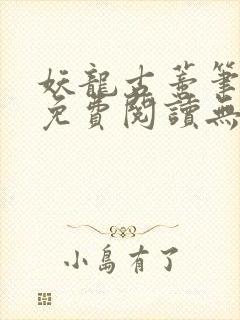 妖龍古蓄筆
免費閱讀無
小島有了